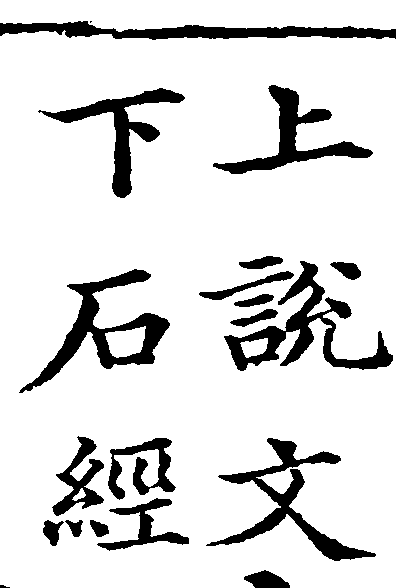 上說文
下石經